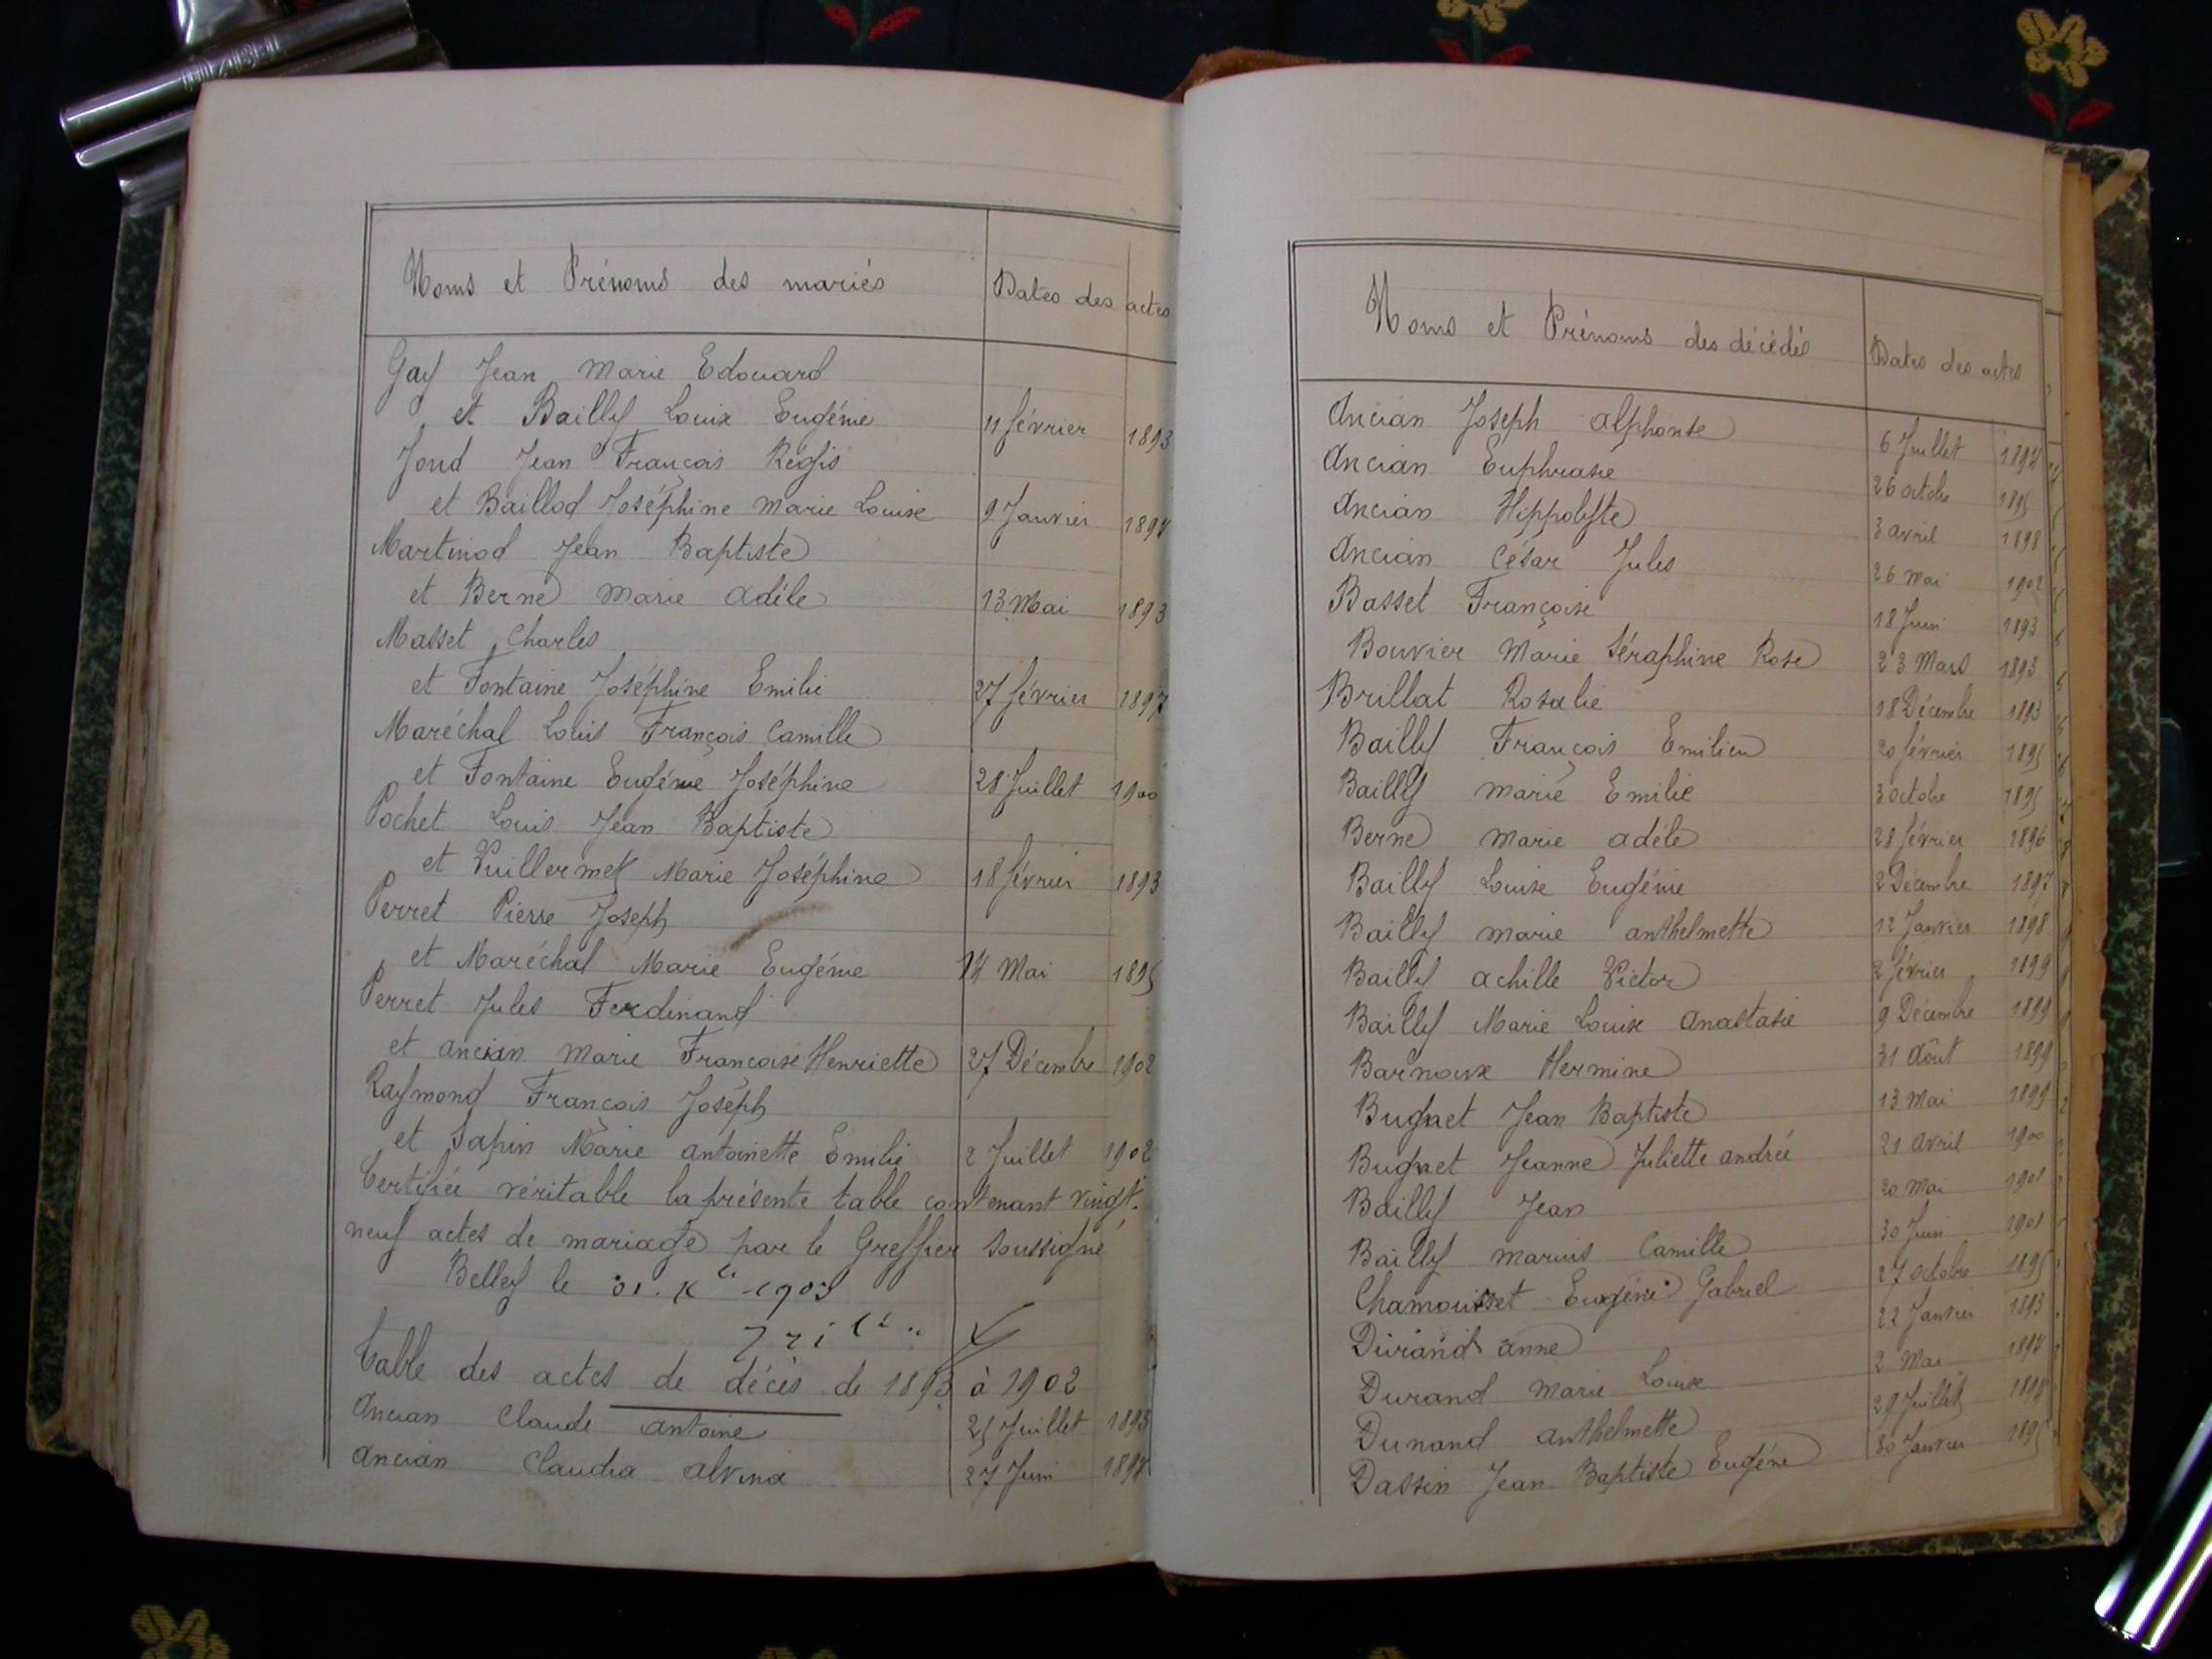 Noms et Prénoms des mariés Dates des actes
Gay Jean Marie Edouard
et Bailly Louise Eugénie 11 février 1893
Joud Jean François Régis
et Baillod Joséphine Marie Louise 9 Janvier 1894
Martinod Jean Baptiste
et Berne Marie Adèle 13 Mai 1893
Masset Charles
et Fontaine Joséphine Emilie 27 février 1897
Maréchal Louis François Camille
et Fontaine Eugénie Joséphine 28 Juillet 1900
Pochet Louis Jean Baptiste
et Vuillermet Marie Joséphine 18 février 1893
Perret Pierre Joseph
et Maréchal Marie Eugénie 14 Mai 1895
Perret Jules Ferdinand
et Ancian Marie Françoise Henriette 27 Décembre 1902
Raymond François Joseph
et Sapin Marie Antoinette Emilie 2 Juillet 1902
Certifiée véritable la présente table contenant vingt-
neuf actes de mariage par le Greffier soussigné
Belley le 1903
Table des actes de décès de 1893 à 1902
Ancian Claude Antoine 25 Juillet 1893
Ancian Claudia Alvina 27 Juin 1894
Noms et Prénoms des décédés Dates des actes
Ancian Joseph Alphonse 6 Juillet 1894
Ancian Euphrasie 26 octobre 1895
Ancian Hippolyte 3 avril 1898
Ancian César Jules 26 mai 1902
Basset Françoise 18 Juin 1893
Bouvier Marie Séraphine Rose 23 Mars 1893
Brillat Rosalie 18 Décembre 1893
Bailly François Emilien 20 février 1895
Bailly Marie Emilie 3 octobre 1895
Berne Marie Adèle 28 février 1896
Bailly Louise Eugénie 2 Décembre 1897
Bailly Marie Anthelmette 12 Janvier 1898
Bailly Achille Victor 2 février 1899
Bailly Marie Louise Anastasie 9 Décembre 1899
Barnoux Hermine 31 Août 1899
Bugnet Jean Baptiste 13 Mai 1899
Bugnet Jeanne Juliette Andrée 21 Avril 1900
Bailly Jean 20 Mai 1901
Bailly Marius Camille 30 Juin 1901
Chamousset Eugénie Gabriel 27 octobre 1895
Durand Anne 22 Janvier 1893
Durand Marie Louise 2 Mai 1894
Dunand Anthelmette 29 Juillet 1894
Dassin Jean Baptiste Eugène 30 Janvier 1895